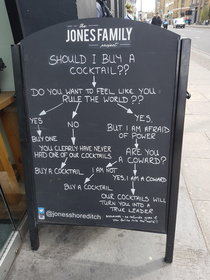 The
JONES FAMILY
project
SHOULD I BUY A
COCKTAIL??
DO YOU WANT TO FEEL LIKE YOU
RULE THE WORLD??
YES
NO
YES,
BUT I AM AFRAID
OF POWER
BUY ONE
YOU CLEARLY HAVE NEVER
HAD ONE OF OUR COCKTAILS
ARE YOU
A COWARD?
BUY A COCKTAIL
I AM NOT
YES, I AM A COWARD
BUY A COCKTAIL
OUR COCKTAILS WILL
TURN YOU INTO A
TRUE LEADER
@jonesshoreditch